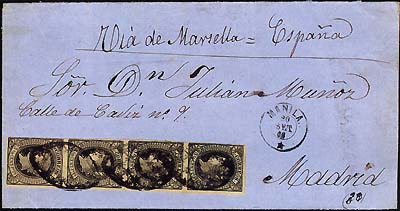 Via de Marsella = España
Sór. Dn. Julian Muñoz
Calle de Cadiz nº 9.
MANILA
20
SET
Madrid